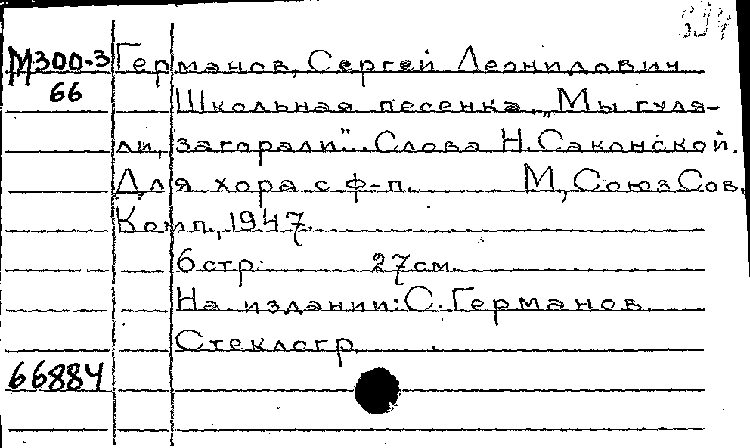 М300-3 Германов, Сергей Леонидович
66 Школьная песенка „Мы гуля-
ли, загорали". Слова Н. Саконской.
Для хора с ф-п. М, Союз Сов.
Комп., 1947.
6 стр. 27 см.
На издании: С. Германов
Стеклогр.
66884